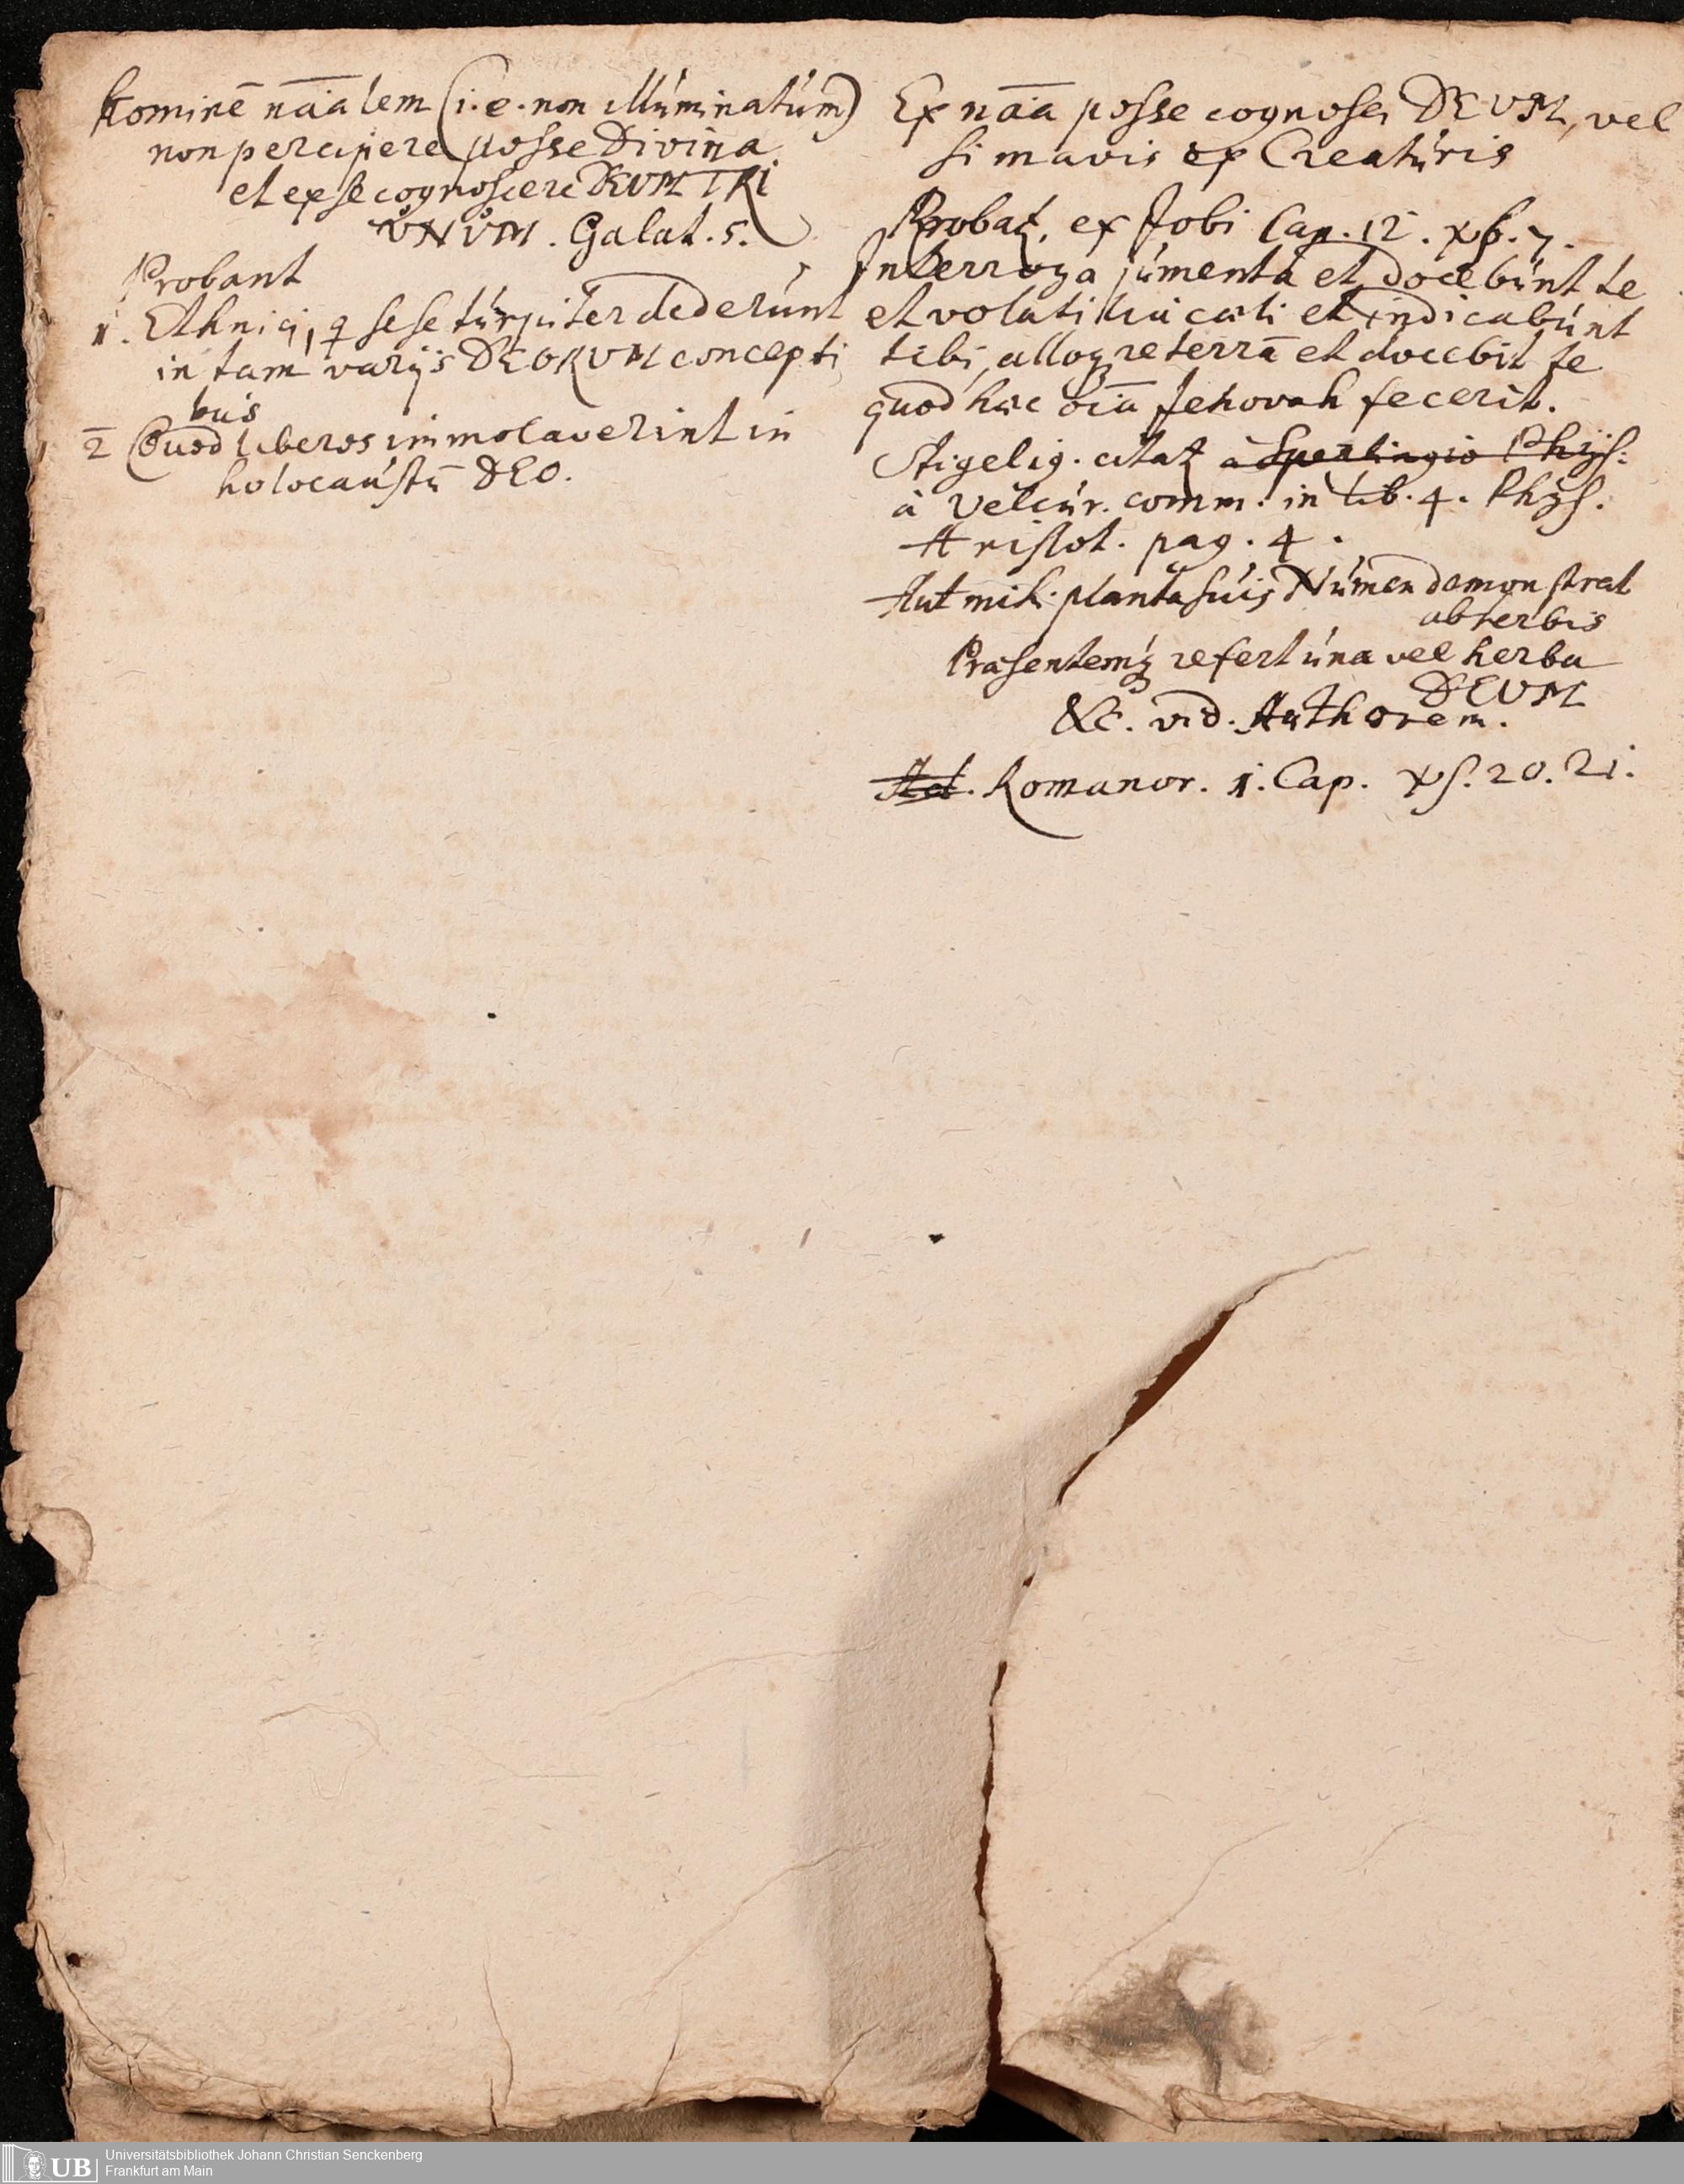 hominē nāalem (i.e. non illúminatúm)
non percipere posse Divina
et ex se cognoscere DEUM TRI
ŮNŮM. Galat. 5.
Probant
1. Ethnici, q sese túrpiter dederúnt
in tam varijs DEORUM concepti
bus
2 Quod liberos immolaverint in
holocaústū DEO.
Ex nāa posse cognosci DEUM, vel
si mavis ex Creatúris
Probat, ex Jobi Cap. 12. vs. 7.
Interroga júmenta et docebúnt te
et volatilia cœli et indicabúnt
tibi, alloqre terrā et docebit te
quod hæc oīa Jehovah fecerit.
Stigelig. citat à Sperlingio Phys:
à Velcúr. comm. in lib. 4. Phys.
Aristot. pag. 4.
Aut mihi planta súis Númen demonstrat
ab herbis
Præsentemq refert úna vel herba
DEUM
&c. vid. Aúthorem.
Ad. Romanor. 1. Cap. vs. 20. 21.
Universitätsbibliothek Johann Christian Senckenberg
Frankfurt am Main
UB